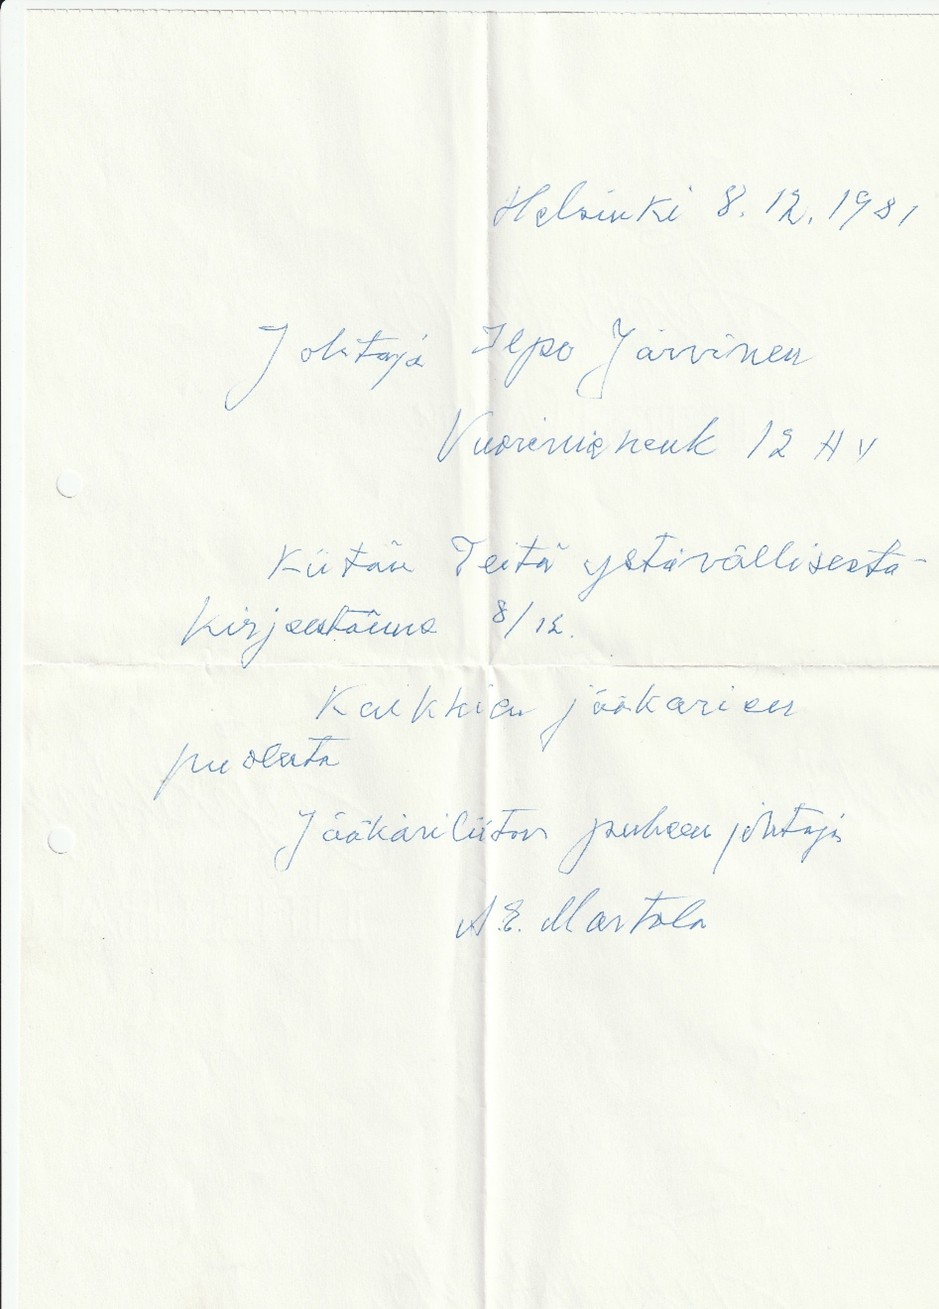 Helsinki 8.12.1981
Johtaja Ilpo Järvinen
Vuorimiehenk 12 H
Kiitän Teitä ystävällisestä
kirjeestänne 8/12.
Kaikkien jääkärien
puolesta
Jääkäriliiton puheenjohtaja
A.E. Martola